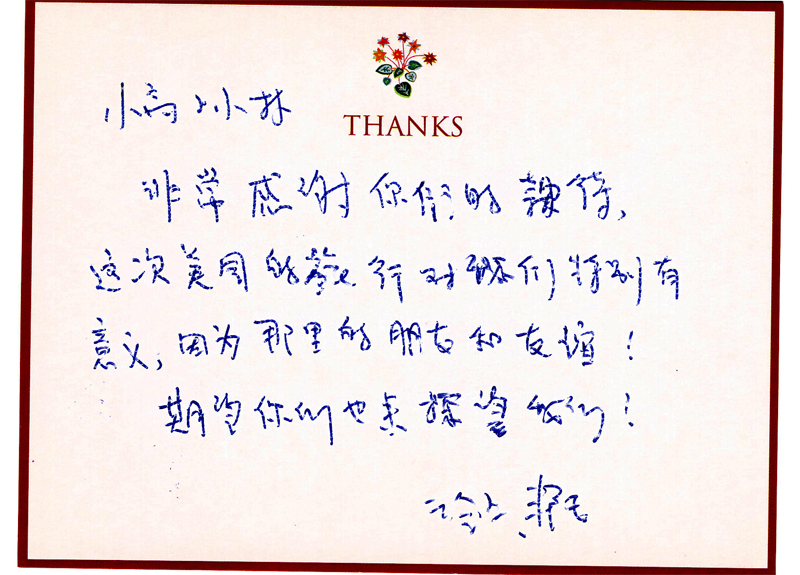 THANKS
小高、小林
非常感谢你们的款待，
这次美国的旅行对我们特别有
意义，因为那里的朋友和友谊！
期望你们也来探望我们！